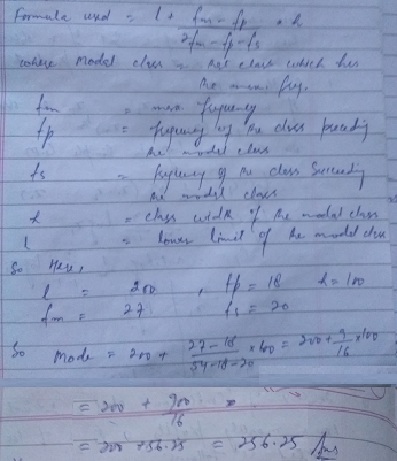 Formula used = l + fm - fp / 2fm - fp - fs × h
where Modal class = the class which has
the max freq.
fm = max frequency
fp = frequency of the class preceding
the modal class
fs = frequency of the class succeeding
the modal class
h = class width of the modal class
l = lower limit of the modal class
So Here,
l = 200 , fp = 18 h = 100
fm = 27 fs = 20
So Mode = 200 + 27-18 / 54-18-20 × 100 = 200 + 9/16 × 100
= 200 + 900/16
= 200 + 56.25 = 256.25 Ans